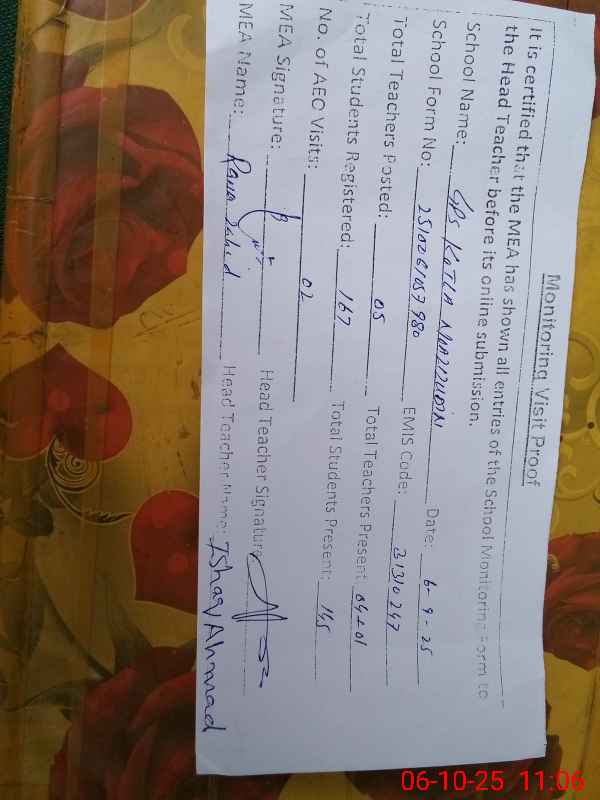 Monitoring Visit Proof
It is certified that the MEA has shown all entries of the School Monitoring Form to
the Head Teacher before its online submission.
School Name: GPS KOTLA Date: 6-9-25
School Form No: EMIS Code: 31310247
Total Teachers Posted: 05 Total Teachers Present: 04+01
Total Students Registered: 167 Total Students Present: 145
No. of AEO Visits: 02
MEA Signature: Head Teacher Signature:
MEA Name: Rana Zahid Head Teacher Name: Ishaq Ahmad
06-10-25 11:06